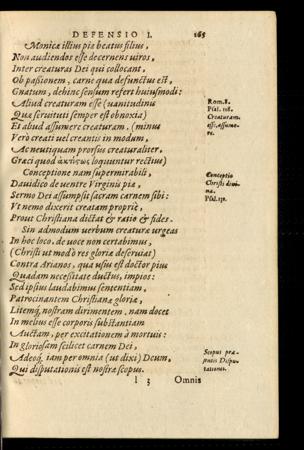 DEFENSIO I. 165
Monicæ illius piæ beatus filius,
Non audiendos esse decernens uiros,
Inter creaturas Dei qui collocant,
Ob passionem, carne qua defunctus est,
Gnatum, dehinc sensum refert huiusmodi:
Aliud creaturam esse (uanitudinu
Quæ seruituti semper est obnoxia)
Et aliud assumere creaturam, (minus
Verò creati uel creantis in modum,
Ac neutiquam prorsus creaturaliter.
Græci quod loquuntur rectius)
Conceptione nam supermirabili,
Dauidico de uentre Virginis pia,
Sermo Dei assumpsit sacram carnem sibi:
Vt nemo dixerit creatam propriè,
Prout Christiana dictat & ratio & fides.
Sin admodum uerbum creaturæ urgeas
In hoc loco, de uoce non certabimus,
(Christi ut modò res gloriæ deseruiat)
Contra Arianos, qua usus est doctor pius
Quadam necessitate ductus, impos:
Sed ipsius laudabimus sententiam,
Patrocinantem Christianæ gloriæ,
Litemq́ nostram dirimentem, nam docet
In melius esse corporis substantiam
Auctam, per excitationem à mortuis:
In gloriosam scilicet carnem Dei,
Adeoq́ iam per omnia (ut dixi) Deum,
Qui disputationis est nostræ scopus.
l 3 Omnis
Rom. 8.
Psal. 118.
Creaturam.
esse, assume-
re.
Conceptio
Christi diui-
na.
Psal. 131.
Scopus præ-
sentis Dispu-
tationis.